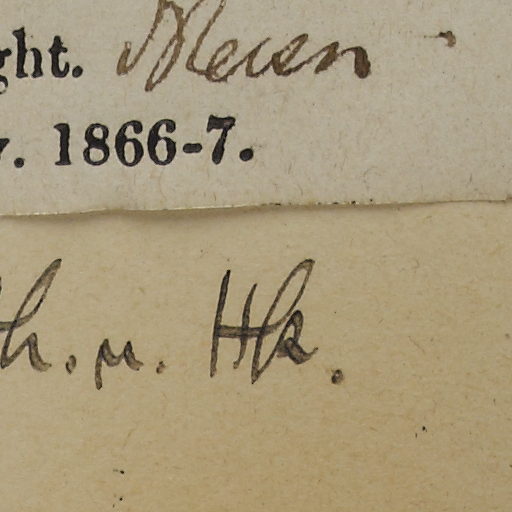 ght.
v. 1866-7.
h. n. Hk.